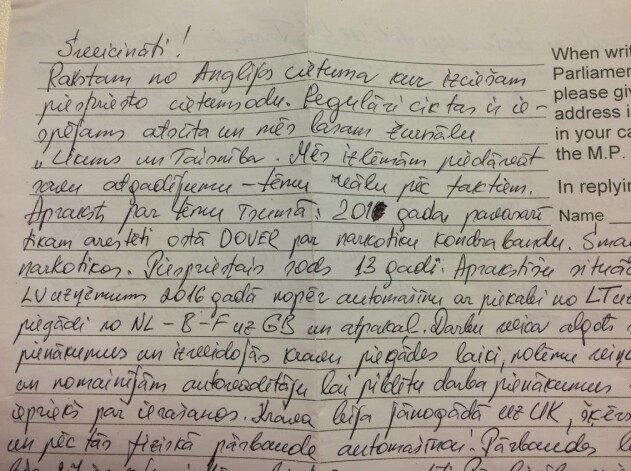 Sveicināti!
Rakstam no Anglijas cietuma kur izciešam
piespriesto cietumsodu. Regulāri cik tas ir ie-
spējams atsūta un mēs lasam žurnālu
„Likums un Taisnība. Mēs izlēmām piedāvāt
savu atgadījumu - tēmu reālu pēc faktiem.
Apraksts par tēmu īsumā: 201 gada pavasarī
tikām arestēti ostā DOVER par narkotiku kondrabandu. Sma
narkotikas. Piespriestais sods 13 gadi. Aprakstīšu situāc
LV uzņēmums 2016 gadā nopēr automašīnu ar piekabi no LT uz
piegādi no NL - B - F uz GB un atpakaļ. Darbu veica algots
pienākumus un izveidojās kravu piegādes laiki, nolēmu
un nomainījām autovadītāju lai pildītu darba pienākumus
iepriekš par ierašanos. Krava bija jānogādā uz UK, šķērs
un pēc tās fiziskā pārbaude automašīnai. Pārbaudes
When writ
Parliamen
please giv
address i
in your ca
the M.P.
In replyin
Name